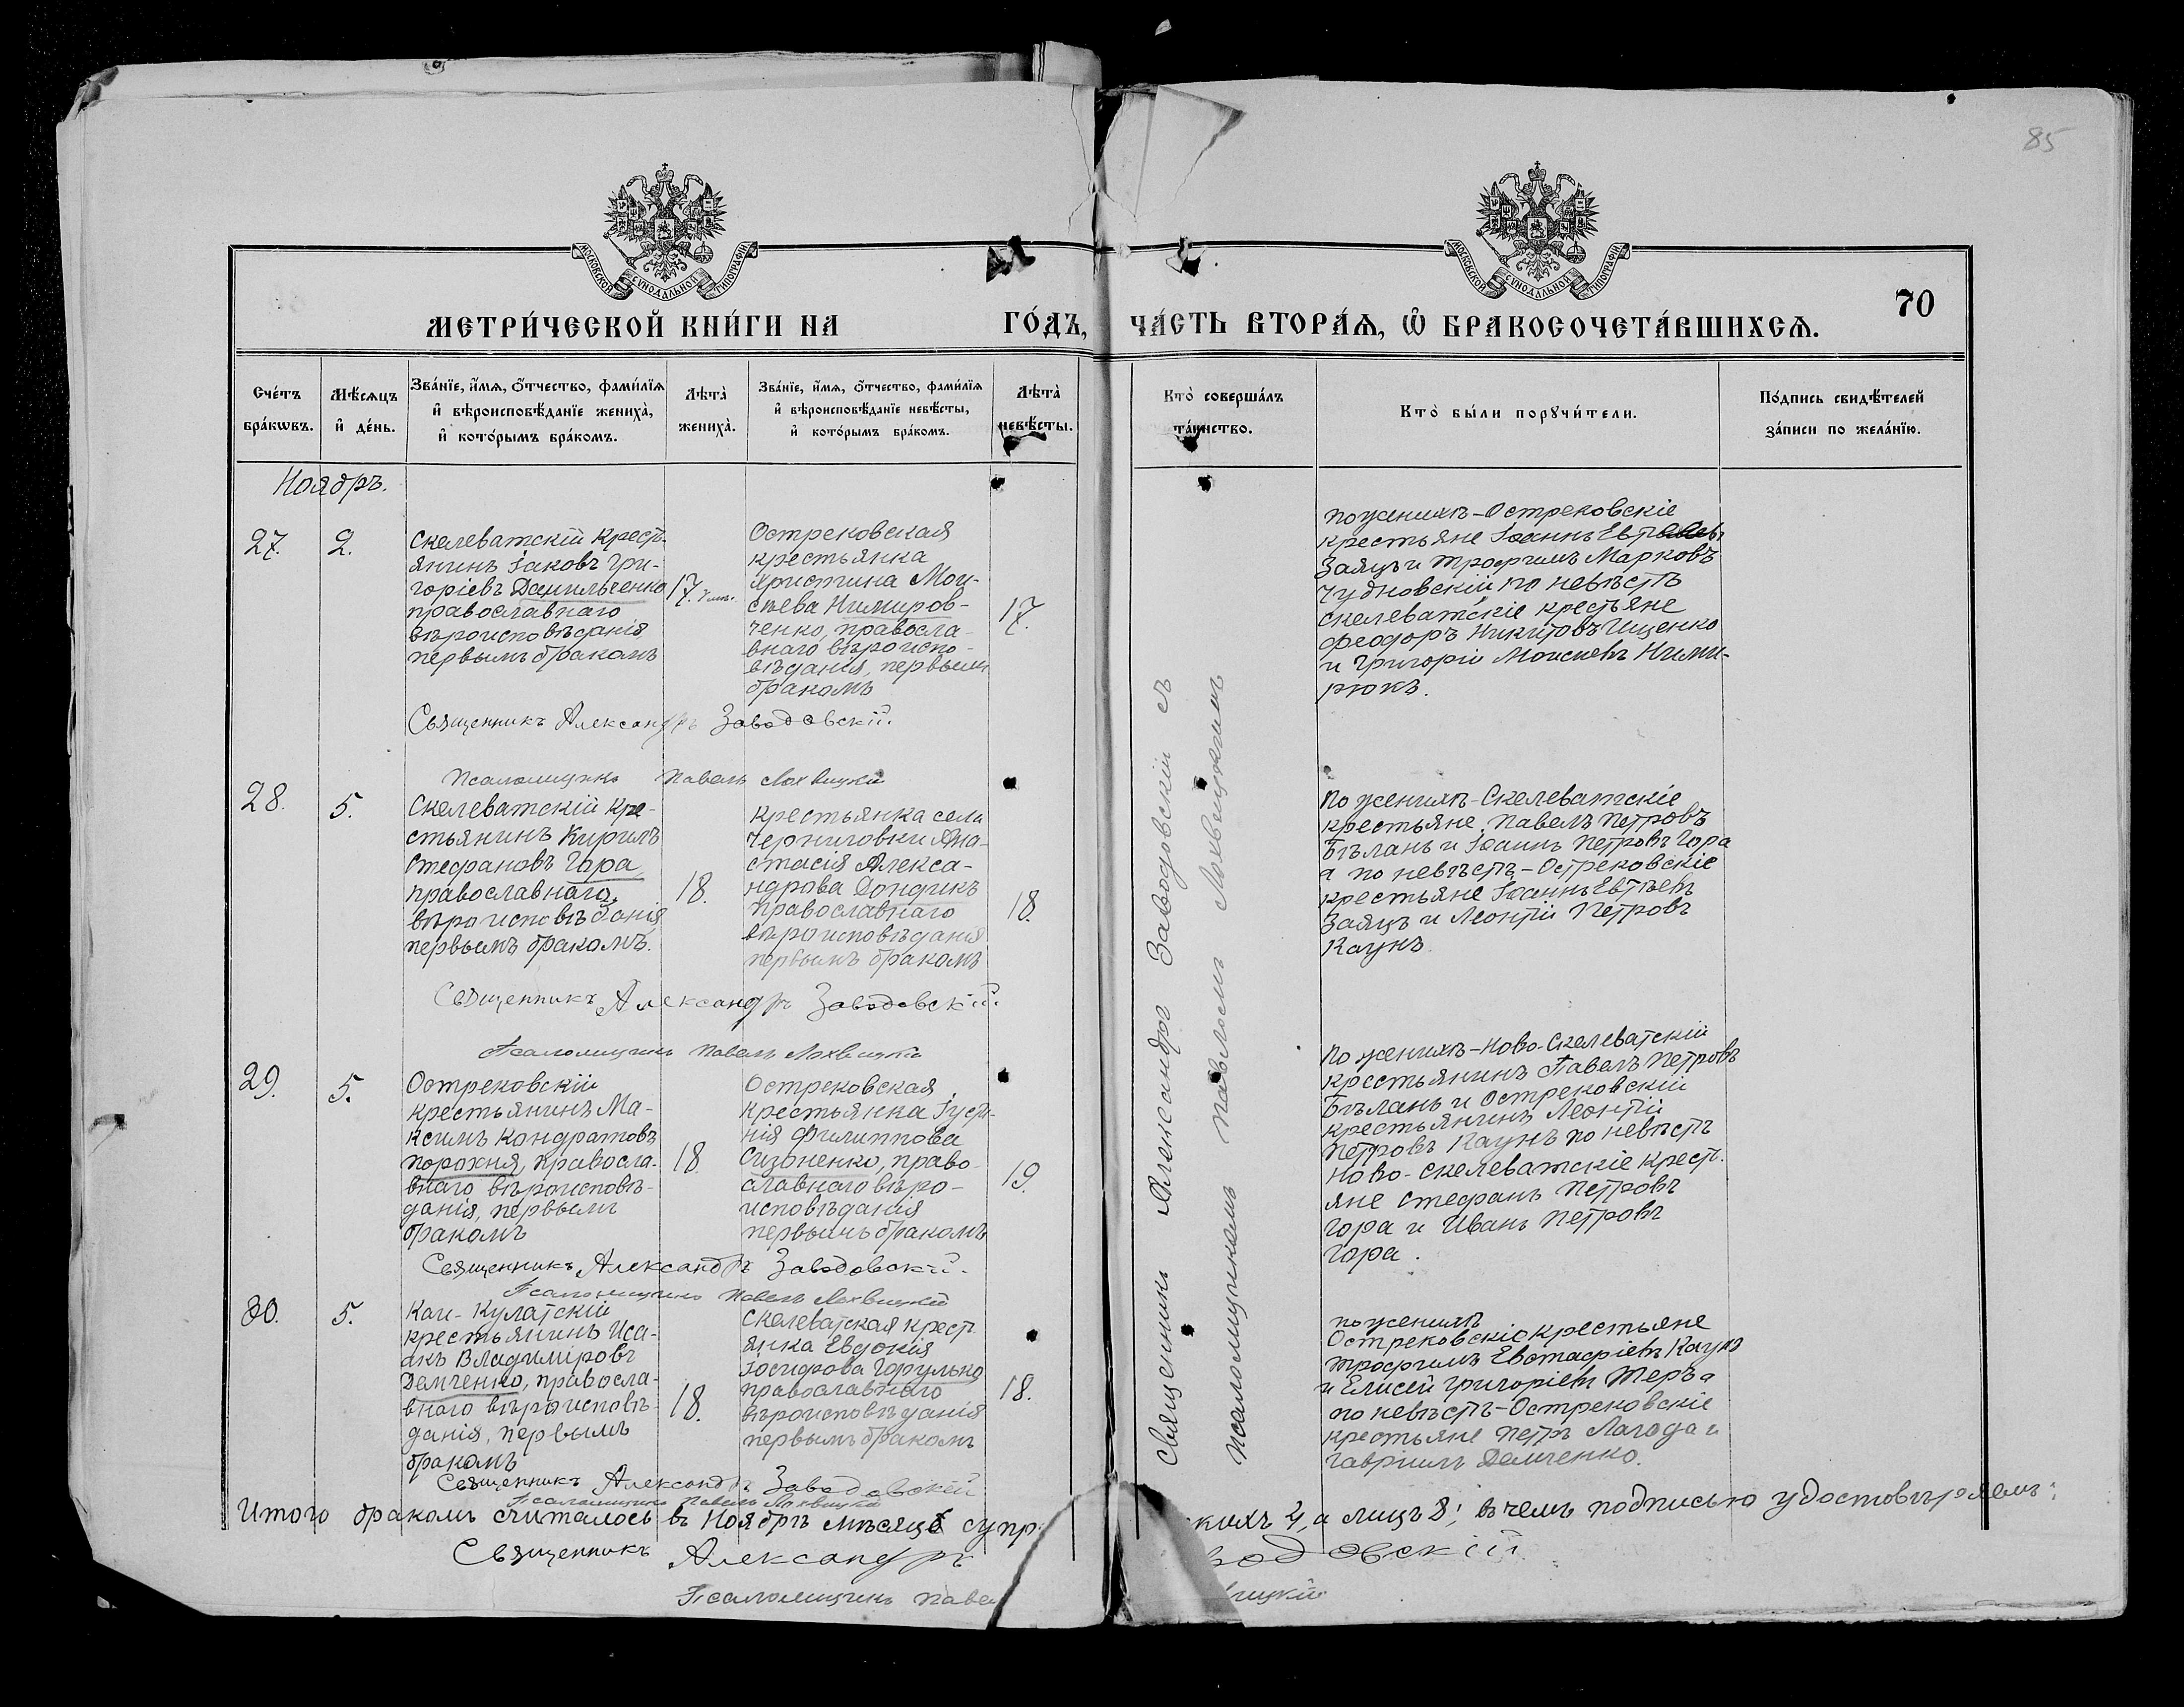 85
МОСКОВСКОЙ СУНОДАЛЬНОЙ ТИПОГРАФІИ
МОСКОВСКОЙ СУНОДАЛЬНОЙ ТИПОГРАФІИ
70
МЕТРИ́ЧЕСКОЙ КНИ́ГИ НА ГО́ДЪ, ЧА́СТЬ ВТОРА́Ѧ, Ѽ БРАКОСОЧЕТА́ВШИХСѦ.
Сче́тъ
бра́кѡвъ.
Мѣ́сѧцъ
и҆ де́нь.
Зва́нїе, и҆́мѧ, о҆́тчество, фами́лїѧ
и҆ вѣроисповѣ́данїе жениха̀,
и҆ кото́рымъ бра́комъ.
Лѣта̀
жениха̀.
Зва́нїе, и҆́мѧ, о҆́тчество, фами́лїѧ
и҆ вѣроисповѣ́данїе невѣ́сты,
и҆ кото́рымъ бра́комъ.
Лѣта̀
невѣ́сты.
Кто̀ соверша́лъ
та́инство.
Кто̀ бы́ли порꙋчи́тели.
По́дпись свидѣ́телей
за́писи по жела́нїю.
Ноябрь.
27.
2.
Скелеватскій крест-
янинъ Іаковъ Гри-
горіевъ Данильченко
православнаго
вѣроисповѣданія
первымъ бракомъ
17.
Остроковская
крестьянка
Христина Мои-
сѣева Нимиров-
ченко, правосла-
внаго вѣроиспо-
вѣданія, первымъ
бракомъ
17.
по женихѣ-Остроковскіе
крестьяне Іоаннъ
Заяцъ и Трофимъ Марковъ
Чудновскій, по невѣстѣ
скелеватскіе крестьяне
Феодоръ Никитовъ Ищенко
и Григорій Моисеевъ Ними-
рюкъ.
Священникъ Александръ Заводовскій.
Псаломщикъ Павелъ Лохвицкій
28.
5.
Скелеватскій кре-
стьянинъ Кирилъ
Стефановъ Гора
православнаго,
вѣроисповѣданія
первымъ бракомъ.
18.
крестьянка села
Черниговки Ана-
стасія Алекса-
ндрова Дондикъ
православнаго
вѣроисповѣданія
первымъ бракомъ
18.
По женихѣ-Скелеватскіе
крестьяне, Павелъ Петровъ
Бѣланъ и Іоаннъ Петровъ Гора
а по невѣстѣ-Остроковскіе
крестьяне Іоаннъ Евтѣевъ
Заяцъ и Леонтій Петровъ
Каунъ
Священникъ Александръ Заводовскій.
Псаломщикъ Павелъ Лохвицкій
29.
5.
Остроковскій
крестьянинъ Ма-
ксимъ Кондратовъ
Порохня, правосла-
внаго вѣроисповѣ-
данія, первымъ
бракомъ
18.
Остроковская
крестьянка Густи-
нія Филиппова
Сизоненко, право-
славнаго вѣро-
исповѣданія
первымъ бракомъ
19.
По женихѣ-Ново-Скелеватскій
крестьянинъ Павелъ Петровъ
Бѣланъ и Остроковскій
крестьянинъ Леонтій
Петровъ Каунъ по невѣстѣ
Ново-Скелеватскіе крест-
яне Стефанъ Петровъ
Гора и Иванъ Петровъ
Гора.
Священникъ Александръ Заводовскій.
Псаломщикъ Павелъ Лохвицкій
30.
5.
Кулатскій
крестьянинъ Иса-
акъ Владиміровъ
Демченко, правосла-
внаго вѣроисповѣ-
данія, первымъ
бракомъ
18.
Скелеватская крест-
янка Евдокія
Іосифова Горулько
православнаго
вѣроисповѣданія
первымъ бракомъ
18.
по женихѣ
Остроковскіе крестьяне
Трофимъ Евстафіевъ Каунъ
и Елисей Григоріевъ а
по невѣстѣ-Остроковскіе
крестьяне Петръ Лагода и
Гавріилъ Демченко.
Священникъ Александръ Заводовскій
Псаломщикъ Павелъ Лохвицкій
Священникъ Александръ Заводовскій съ
псаломщикомъ Павломъ Лохвицкимъ
Итого бракомъ считалось въ Ноябрѣ мѣсяцѣ супр скихъ 4, а лицъ 8; въ чемъ подписью удостовѣряемъ:
Священникъ Александръ водовскій
Псаломщикъ Паве вицкій